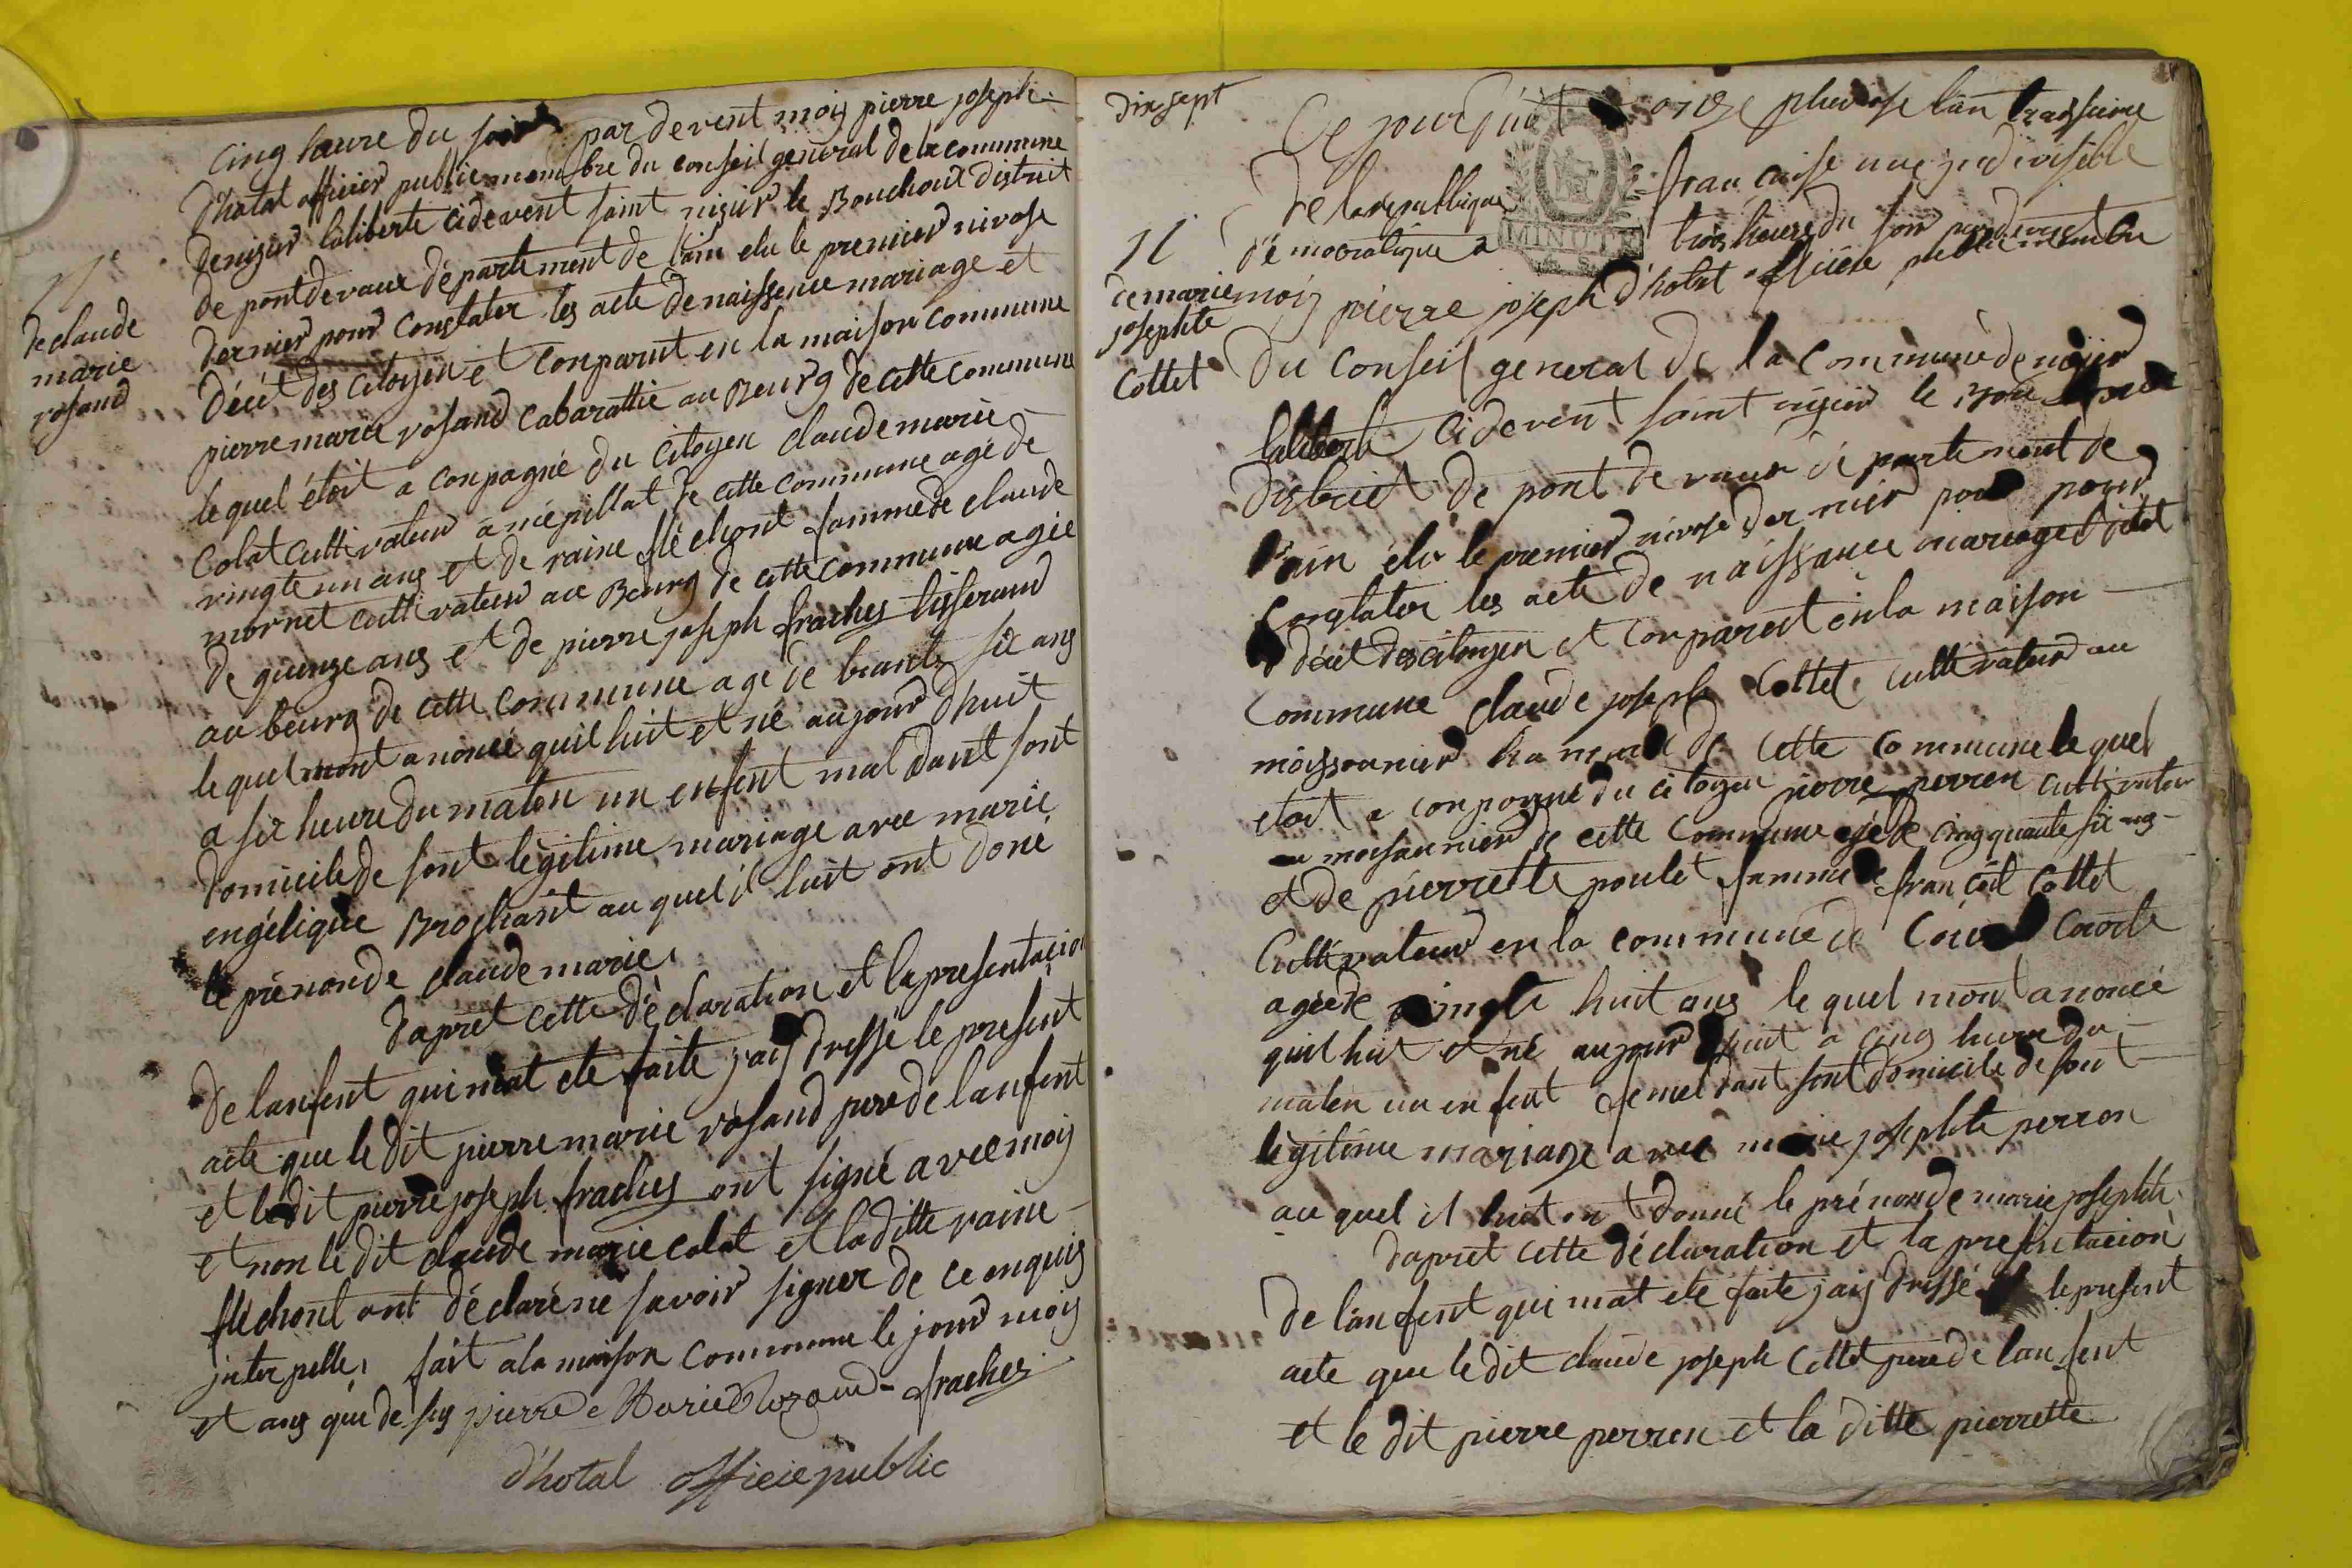 cinq heure du soire par devent mois pierre joseph
d'hotal officier public membre du conseil general de la commune
de nizier laliberté cidevent saint nizier le Bouchout district
de pontdevaux département de l'ain elu le premier nivose
dernier pour constater les acte de naissence mariage et
décét des citoyen et conparut en la maison commune
pierre marie rosand cabarattié au Beurg de cette commune
le quel étoit a conpagné du citoyen claude marie
colat cultivateur a mépillat de cette commune agé de
vingte un ans et de raine fléchont famme de claude
mornet cultivateur au Beurg de cette commune agée
de quinze ans et de pierre joseph fraches tisserand
au beurg de cette commune agé de trante six ans
le quel mont anoncé quil huit et né aujourd'huit
a six heure du maten un enfent mal dant sont
domicile de sont légitime mariage avec marie
engélique Brochant au quel il huit ont doné
le prénon de claude marie
dapret cette déclaration et la presentacion
de lanfent qui mat ete faite jais dressé le present
acte que le dit pierre marie rosand pere de lanfent
et le dit pierre joseph fraches ont signé avec mois
et non le dit claude marie colat et la ditte raine
fléchont ont déclaré ne savoir signer de ce enquis
jnterpellé, fait a la maison commune le jour mois
et ans que de sus pierre Marie Rozand fraches
d'hotal officie public
de claude
marie
rosand
dix sept
11
de marie
josephte
Cottet
Ce jourd'huit onze pluviose lan traisieme
de la republique francaise une jndivisible
démocratique a trois heure du soir par devent
MINUTE
mois pierre joseph d'hotal officiere public membre
du conseil general de la commune de nizier
laliberté cidevent saint nizier le
district de pont de vaux département de
l'ain élu le premier nivose dernier pour pour
constater les acte de naissance mariage
décét des citoyen et conparut en la maison
commune claude joseph Cottet cultivateur au
moissonnier hameau de cette commune le quel
etoit a conpagné du citoyen pierre perren cultivateur
au moisonnier de cette commune agé de cinqquante six ans
et de pierrette poulet famme de francoit Cottet
Cultivateur en la commune de Courte
agée de vingte huit ans le quel mont anoncé
quil huit et né aujourd'huit a cinq heure du
maten un enfent femel dant sont domicile de sont
légitime mariage avec marie josephte perron
au quel il huit ont donné le prénon de marie josephte
dapret cette déclaration et la presentacion
de lanfent qui mat ete faite jais dressé le present
acte que le dit claude joseph Cottet pere de lanfent
et le dit pierre perren et la ditte pierrette